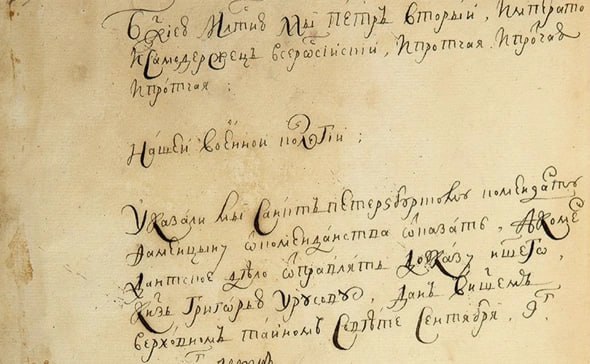 Бжиею Млтию Мы Пéтръ вторый, Императо
и Самодержецъ всероссiйскiй, и протчая и протчая
и протчая:
Нашей военной колегiи:
Указали мы Санктъ петерзбургскому коменданту
от комендантства отказать, а коме
дантское дѣло отправлять до указу ншего,
Кнзь Григорью Урусову, данъ в ншемъ
верховномъ тайномъ Совѣте Сентября, 9г